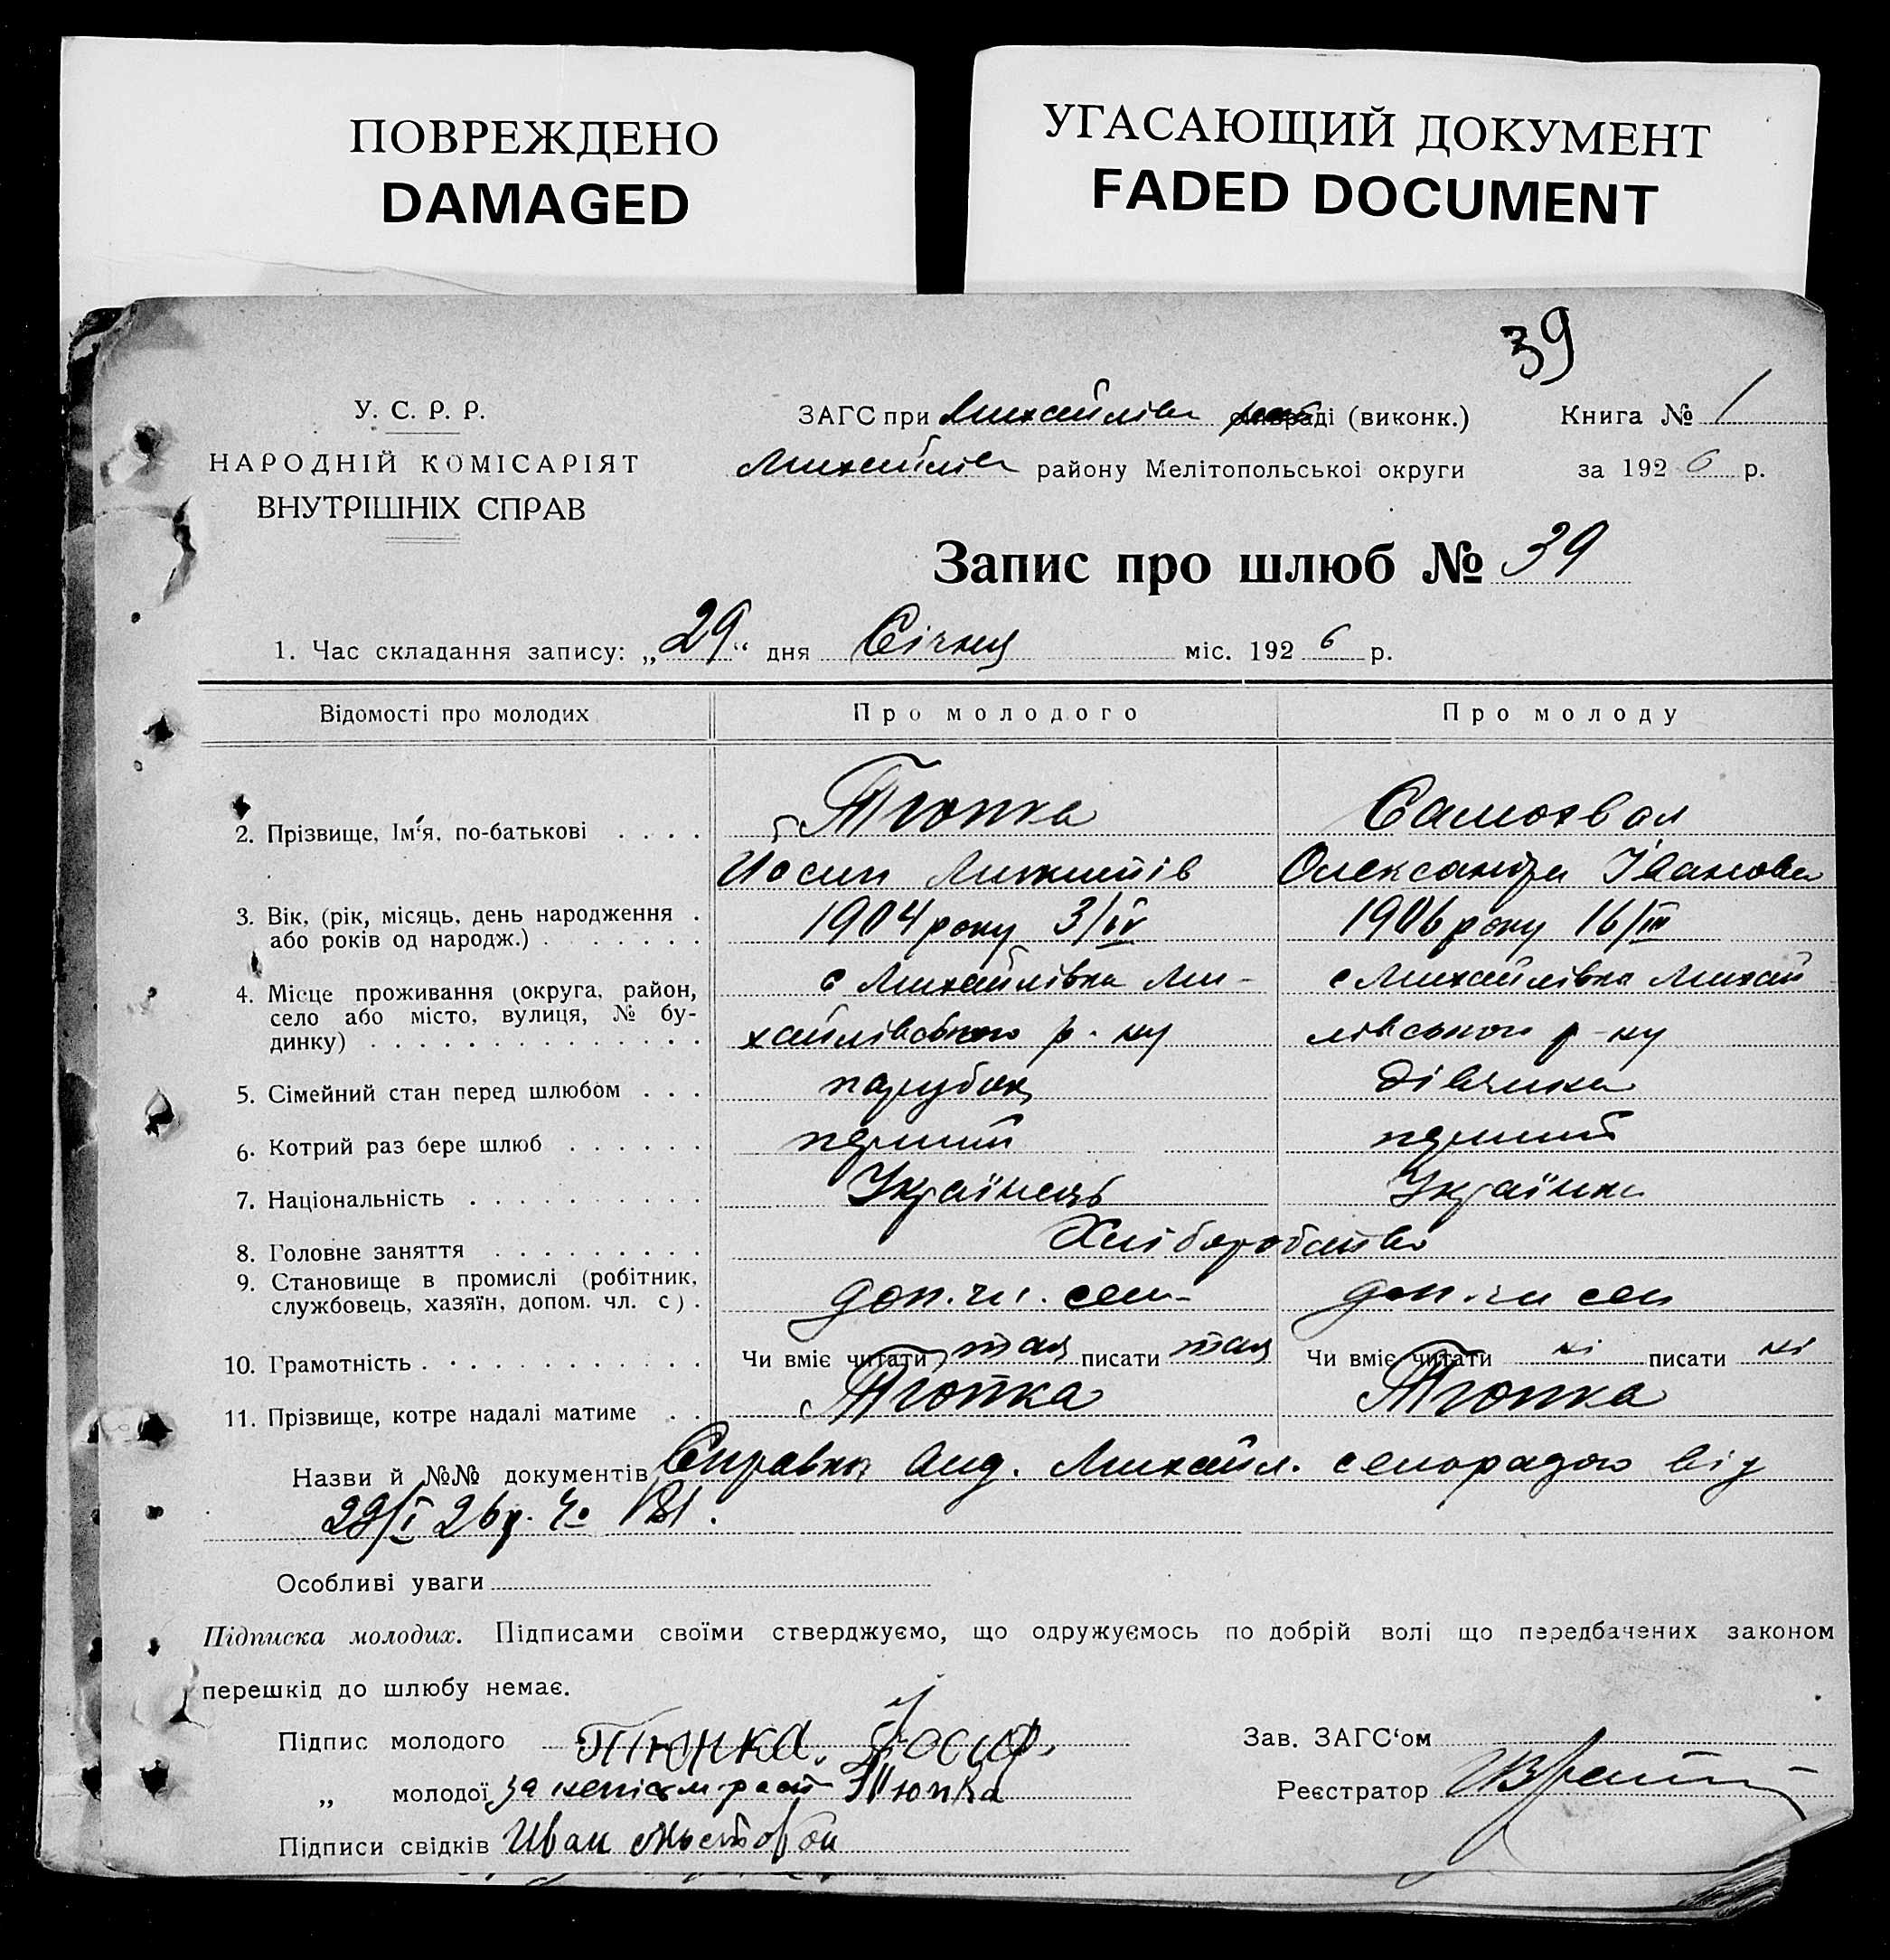 ПОВРЕЖДЕНО
DAMAGED
УГАСАЮЩИЙ ДОКУМЕНТ
FADED DOCUMENT
39
У. С. Р. Р.
НАРОДНІЙ КОМІСАРІЯТ
ВНУТРІШНІХ СПРАВ
ЗАГС при Михайлівс (виконк.) Книга № 1
Михайлівс району Мелітопольської округи за 1926 р.
Запис про шлюб № 39
1. Час складання запису: „29“ дня Січня міс. 1926 р.
Відомості про молодих Про молодого Про молоду
2. Прізвище, Ім'я, по-батькові . . . . Тюпка Самохвал
Йосип Микитів Олександра Іванова
3. Вік, (рік, місяць, день народження . 1904 року 3/IV 1906 року 16/III
або років од народж.) . . . . . . .
4. Місце проживання (округа, район, с Михайлівка Ми- с Михайлівка Михай
село або місто, вулиця, № бу-
динку) . . . . . . . . . . . . . . хайлівського р-ну лівського р-ну
5. Сімейний стан перед шлюбом . . . парубок дівчина
6. Котрий раз бере шлюб . . . . . . перший перший
7. Національність . . . . . . . . . . Українець Українка
8. Головне заняття . . . . . . . . . Хліборобство
9. Становище в промислі (робітник,
службовець, хазяїн, допом. чл. с) . доп. чл. сем- доп. чл сем
10. Грамотність . . . . . . . . . . . . Чи вміє читати так писати так Чи вміє читати ні писати ні
11. Прізвище, котре надалі матиме . . Тюпка Тюпка
Назви й №№ документів Справка вид. Михайл. сельрадою від
29/I 26р. 181.
Особливі уваги
Підписка молодих. Підписами своїми стверджуємо, що одружуємось по добрій волі що передбачених законом
перешкід до шлюбу немає.
Підпис молодого Тюпка Йосиф. Зав. ЗАГС'ом
„ молодої за Тюпка Реєстратор
Підписи свідків Иван